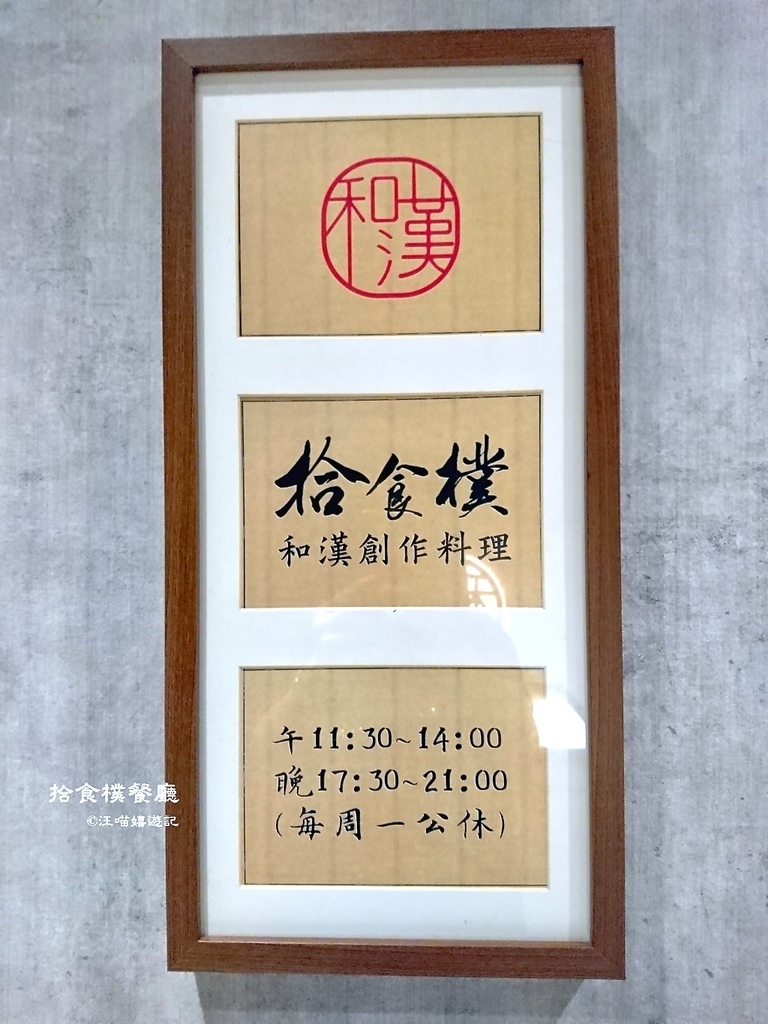 和漢
拾食樸
和漢創作料理
午11:30~14:00
晚17:30~21:00
(每周一公休)
拾食樸餐廳
©汪喵嬉遊記